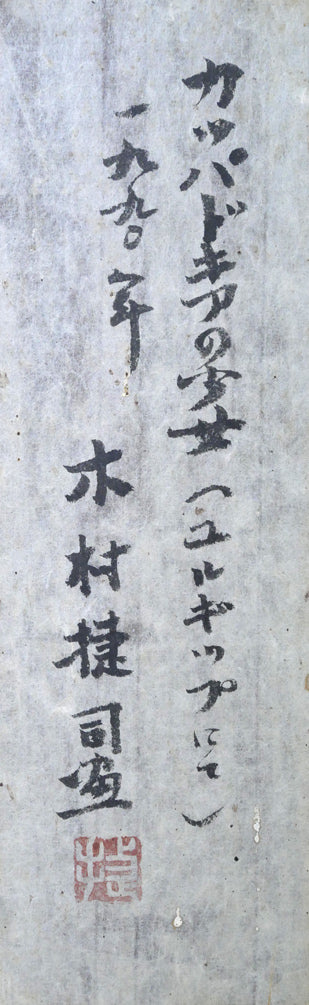 カッパドキアの少女（ユルギップにて）
一九九〇年
木村捷司画
捷